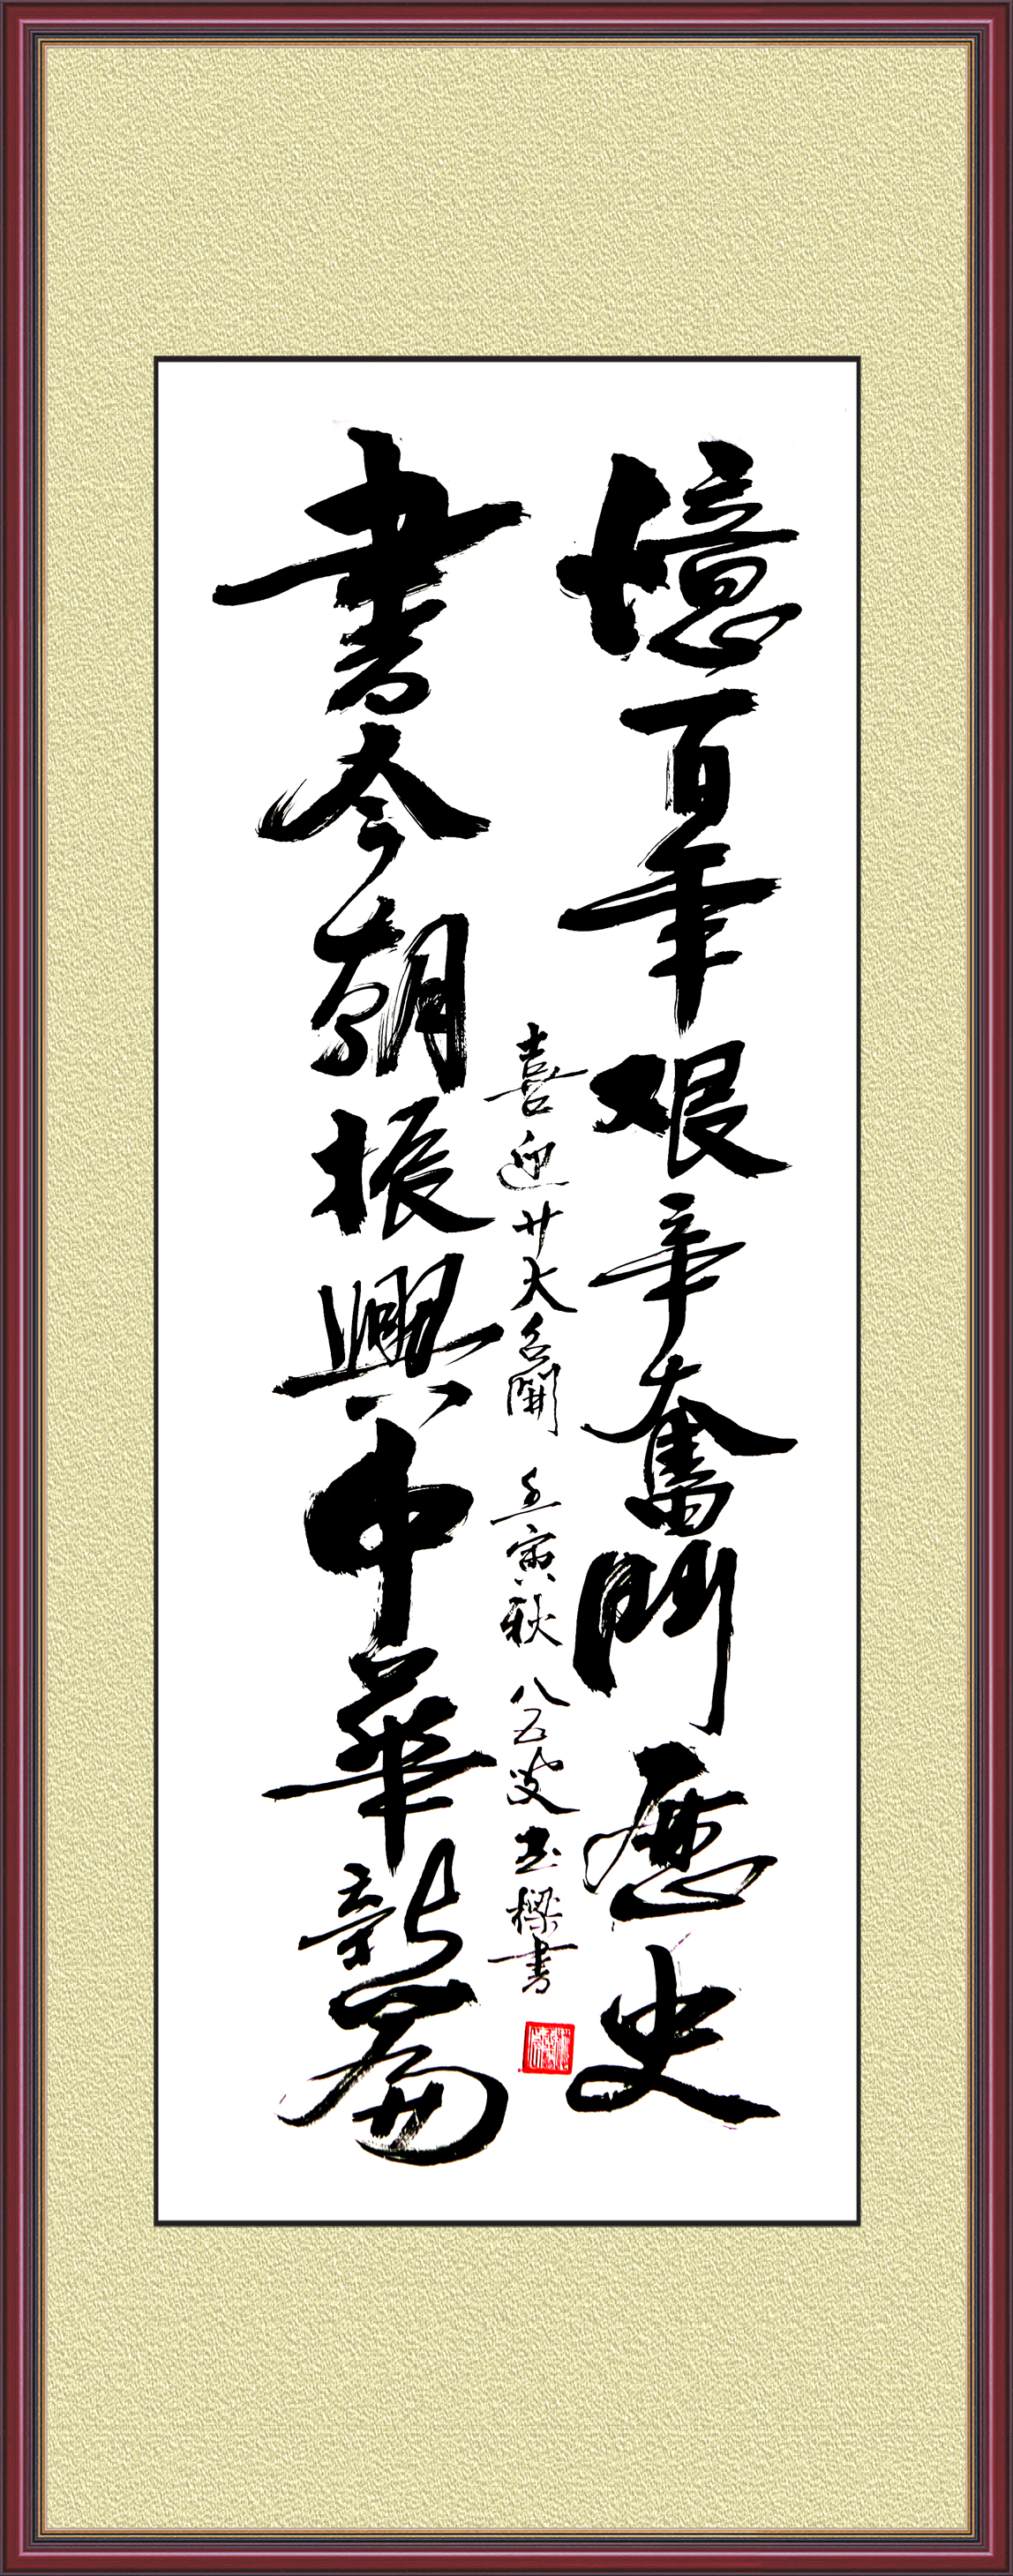 憶百年艰辛奮鬥歷史
書今朝振興中華新篇
喜迎廿大召開 壬寅秋 八五叟玉樑書